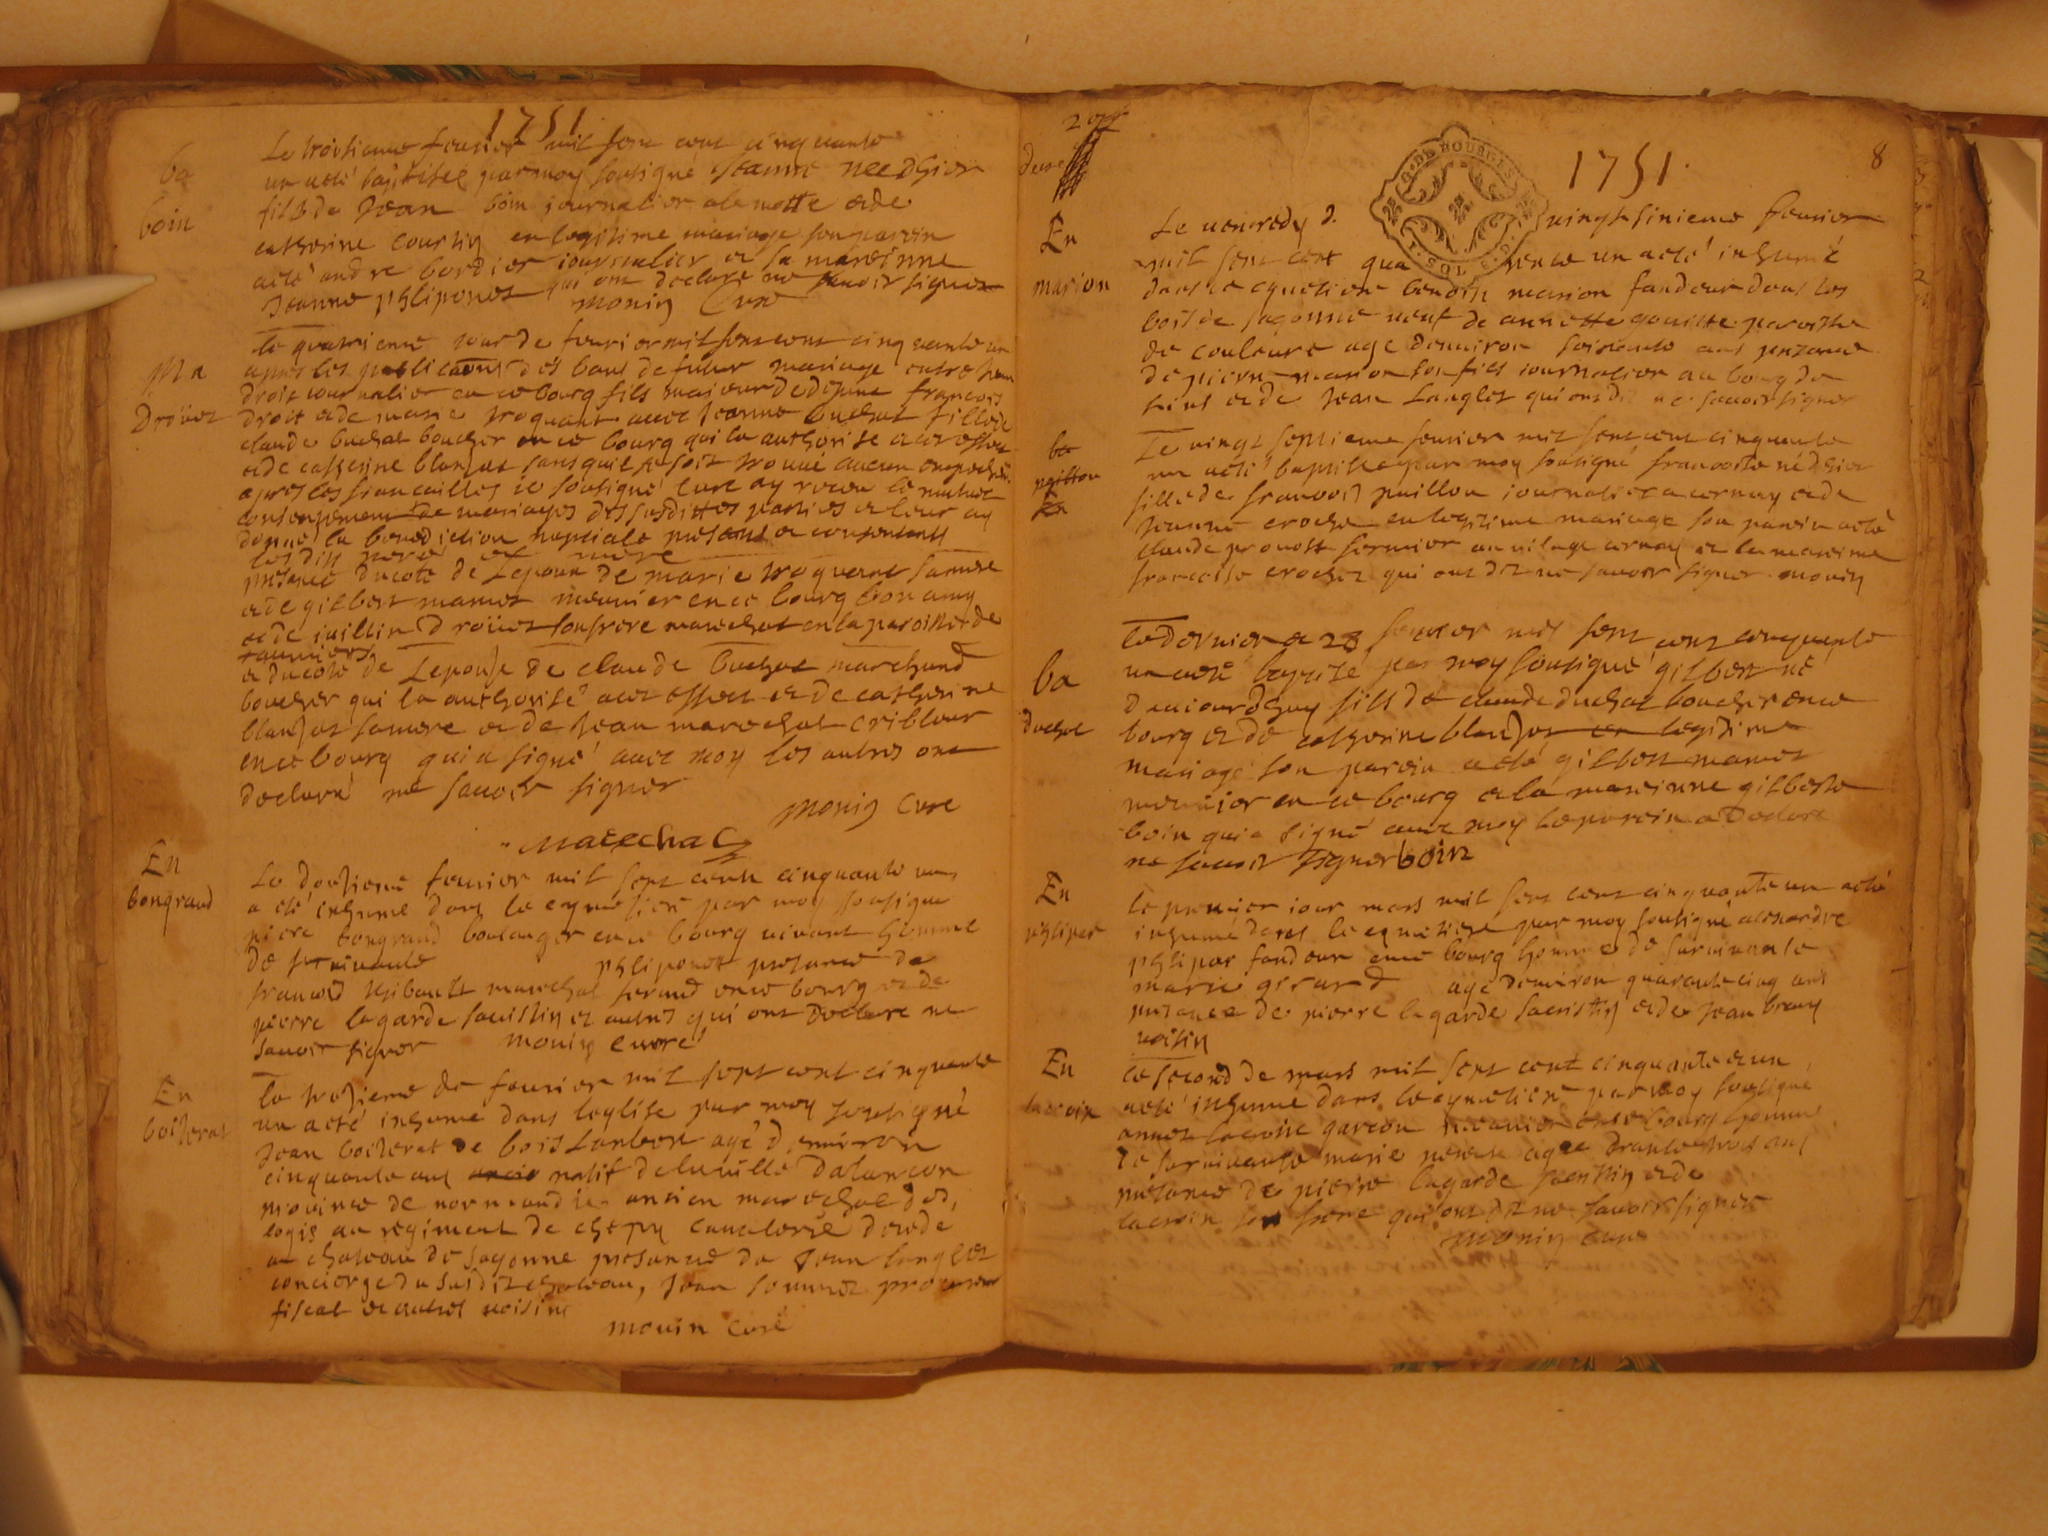 1751
ba
boin
Le troisieme feurier mil sept cent cinquante
un a eté baptisee par moy sousigné Jeanne nee d hier
fille de Jean boin journalier a la motte et de
catherine courtin en legitime mariage son parein
a eté andre bordier journalier et la mareinne
Jeanne phliponet qui ont declaré ne sauoir signer
monin Cure
Ma
Droüet
Le quatrieme jour de feurier mil sept cent cinquante un
apres les publications des bans de futur mariage entre Jean
droit journalier en ce bourg fils majeur de defunt francois
droit et de marie troquant auec Jeanne buchet fille de
claude buchet boucher en ce bourg qui la authorise a cet effect
et de catherine blanzet sans quil se soit trouué aucun empeche
apres les fiancailles ie sousigné curé ay recu le mutuel
consentement de mariages des susdittes parties et leur ay
donné la benediction nuptiale presents et consentants
les dits pere et mere
presence du coté de Lepoux de marie troquant sa mere
et de gilbert mamet meunier en ce bourg bon amy
et de juillin Droüet son frere marechal en la paroisse de
et du coté de Lepouse de claude buchet marchand
boucher qui la authorisé a cet effect et de catherine
blanzet sa mere et de Jean marechal cribleur
en ce bourg qui a signé auec moy les autres ont
declaré ne sauoir signer
monin Cure
Marechal
En
bongrand
Le douzieme feurier mil sept cent cinquante un
a eté inhumé dans le cymetiere par moy sousigné
piere bongrand boulanger en ce bourg uiuant homme
de suruiuante phliponet presence de
francois thibault marechal ferand en ce bourg et de
pierre lagarde sacristin et autres qui ont Declare ne
sauoir signer monin curé
En
boizerat
Le treizieme de feurier mil sept cent cinquante
un a eté inhumé dans leglise par moy sousigné
Jean boizerat de bois Lambert agé d enuiron
cinquante ans natif de la uille dalancon
prouince de normandie ancien marechal des
logis au regiment de chepy caualerie decedé
au chateau de sagonne presence de Jean langlet
concierge du susdit chateau, Jean procureur
fiscal et autres uoisins
monin curé
1751.
8
En
marion
Le uendredy uingt sixieme feurier
mil sept cent un a eté inhumé
dans le cymetiere benoist marion fandeur dans les
bois de sagonne ueuf de annette paroisse
de couleure agé denuiron soixante ans presence
de pierre marion son fils journalier au bourg de
et de Jean Langlet qui ont dit ne sauoir signer
ba
paillou
Le uingt septieme feurier mil sept cent cinquante
un a eté baptisee par moy sousigné francoise né d hier
fille de francois paillou journalier a cernay et de
Jeanne crochet en legitime mariage son parein a eté
claude prouost fermier au uilage cernay et la mareinne
francoise crochet qui ont dit ne sauoir signer monin
ba
buchet
Le dernier et 28 feurier mil sept cent cinquante
un a eté baptisé par moy sousigné gilbert né
daujourdhuy fils de claude buchet boucher en ce
bourg et de catherine blanzet en legitime
mariage son parein a eté gilbert mamet
meunier en ce bourg et la mareinne gilberte
boin qui a signé auec moy le parein a Declaré
ne sauoir signer boin
En
phlipar
Le premier iour mars mil sept cent cinquante un a eté
inhumé dans le cymetiere par moy sousigné alexandre
phlipar fandeur en ce bourg homme de suruiuante
marie gerard agé denuiron quarante cinq ans
presence de pierre lagarde sacristin et de Jean
uoisin
En
lacroix
Le second de mars mil sept cent cinquante et un
a eté inhumé dans le cymetiere par moy sousigné
annet lacroix garcon meunier en ce bourg homme
de suruiuante marie agee trante trois ans
presence de pierre lagarde sacristin et de
lacroix son frere qui ont dit ne sauoir signer
monin cure